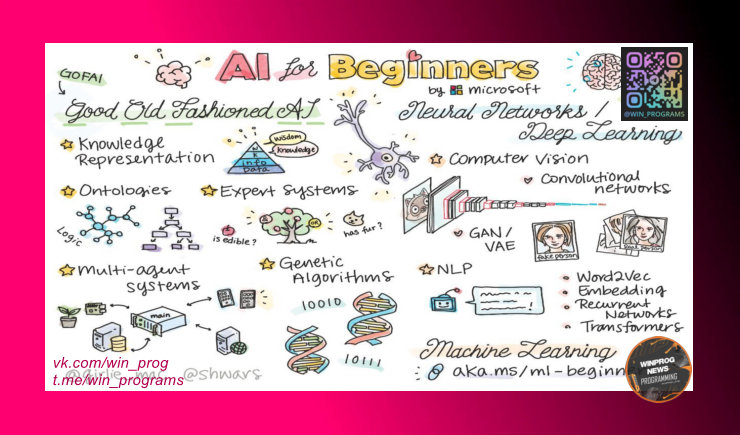 AI for Beginners
by Microsoft
@WIN_PROGRAMS
GOFAI
Good Old Fashioned AI
Knowledge
Representation
wisdom
knowledge
Info
Data
Ontologies
Logic
Expert Systems
is edible?
OR
has fur?
Multi-agent
systems
main
Genetic
Algorithms
10010
10111
Neural Networks /
Deep Learning
Computer Vision
Convolutional
networks
GAN/
VAE
fake person
NLP
Word2Vec
Embedding
Recurrent
Networks
Transformers
Machine Learning
aka.ms/ml-beginn
vk.com/win_prog
t.me/win_programs
@girlie_mac @shwars
WINPROG
NEWS
PROGRAMMING